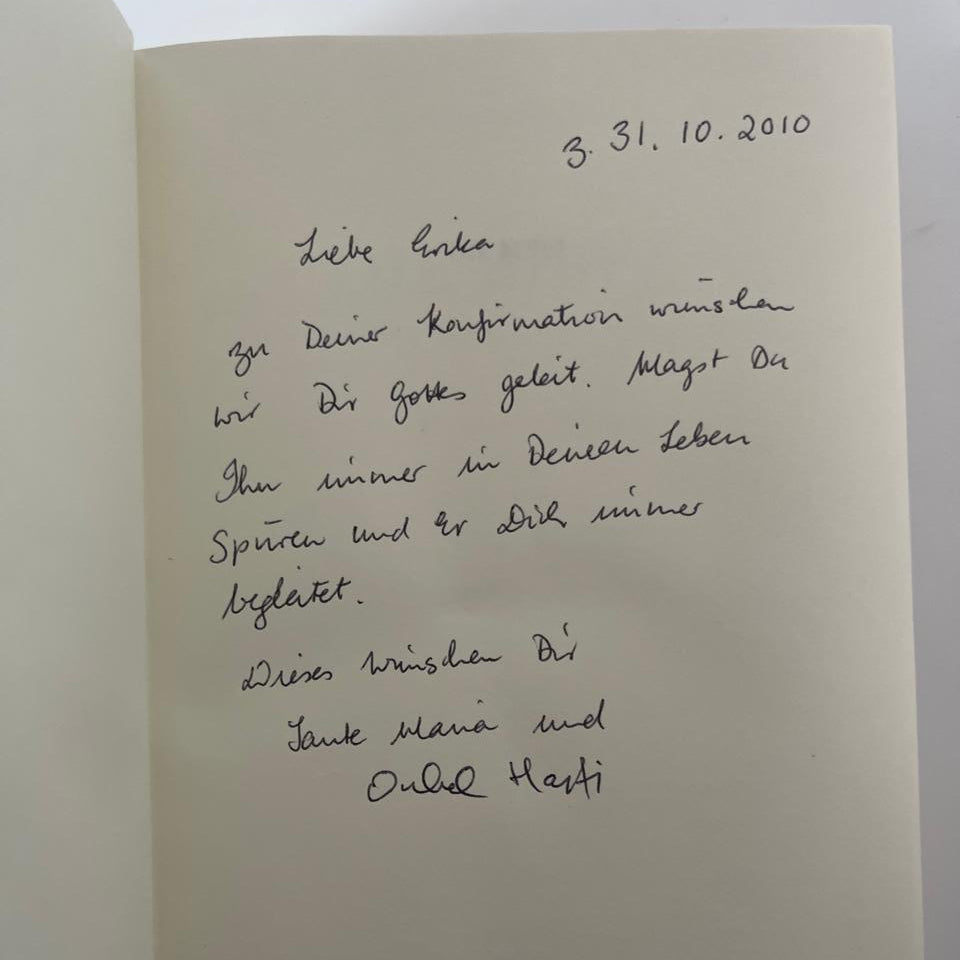 3. 31. 10. 2010
Liebe Erika
zu Deiner Konfirmation wünschen
wir Dir Gottes geleit. Magst Du
Ihn immer in Deinen Leben
Spüren und Er Dich immer
begleitet.
Dieses wünschen Dir
Tante Maria und
Onkel